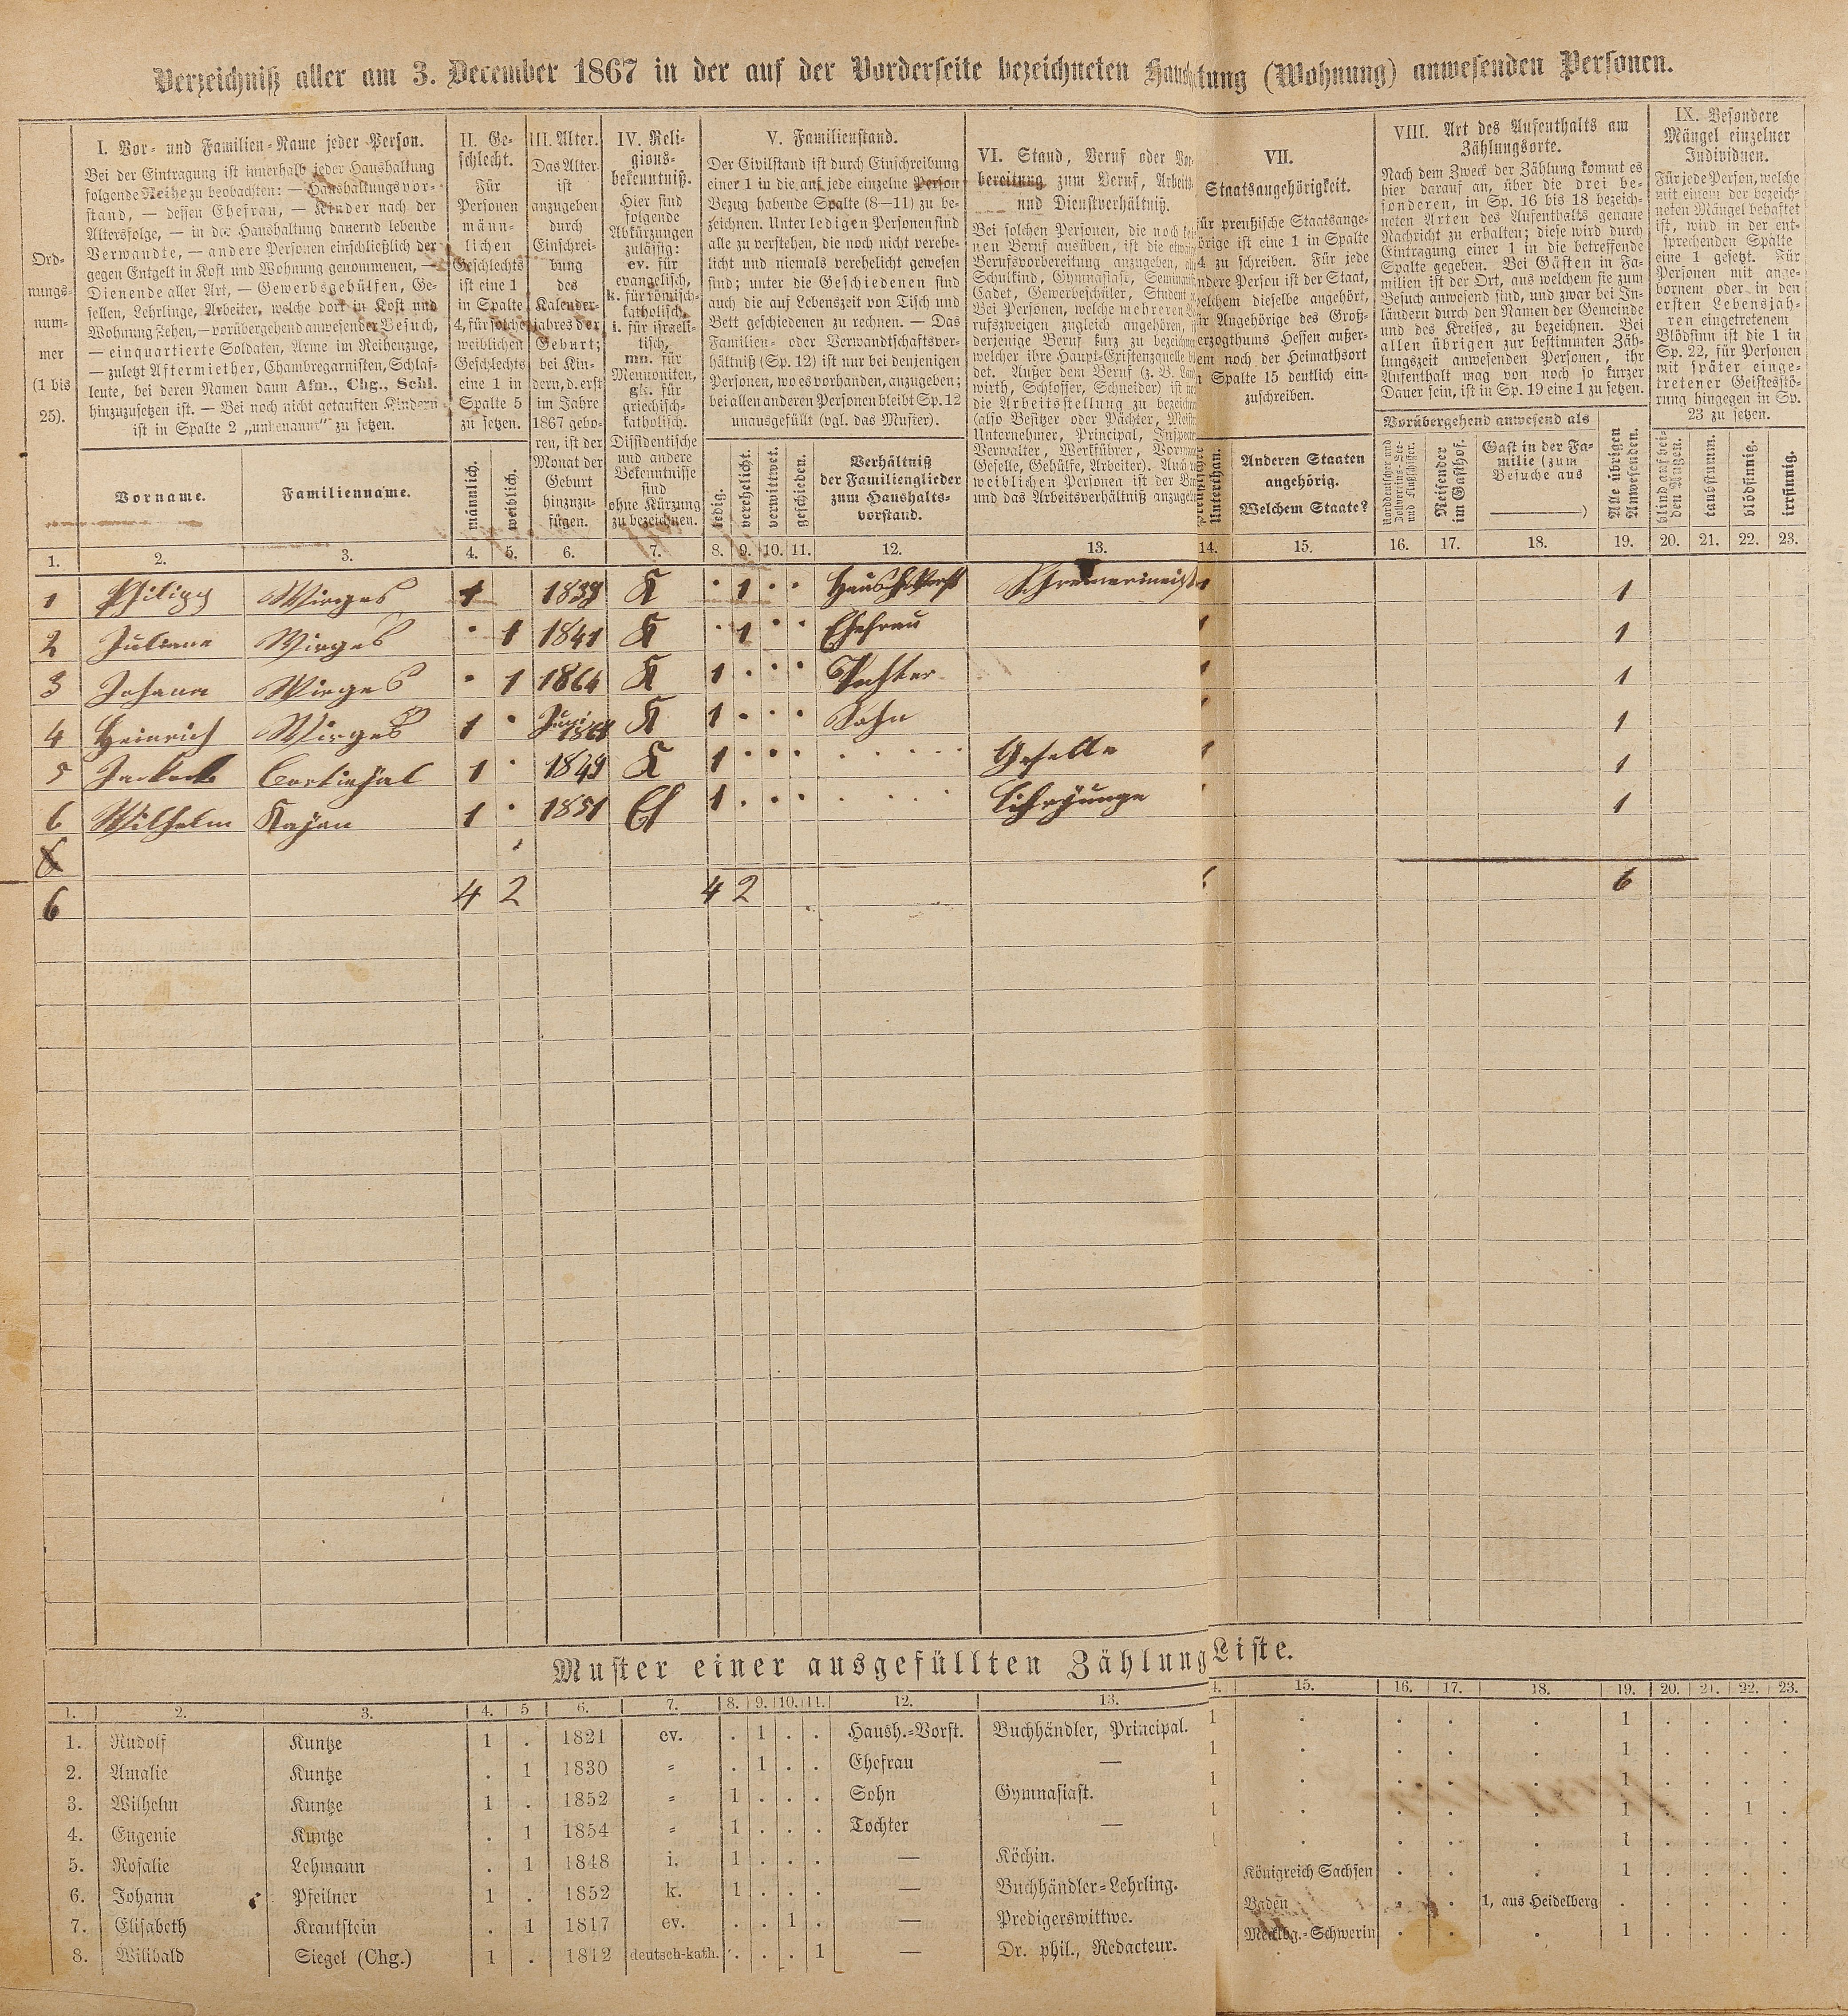 Verzeichniß aller am 3. December 1867 in der auf der Vorderseite bezeichneten Haushaltung (Wohnung) anwesenden Personen.
Ord-
nungs-
num-
mer
(1 bis
25).
I. Vor- und Familien-Name jeder Person.
Bei der Eintragung ist innerhalb jeder Haushaltung
folgende Reihe zu beobachten: — Haushaltungsvor-
stand, — dessen Ehefrau, — Kinder nach der
Altersfolge, — in der Haushaltung dauernd lebende
Verwandte, — andere Personen einschließlich der
gegen Entgelt in Kost und Wohnung genommenen, —
Dienende aller Art, — Gewerbsgehülfen, Ge-
sellen, Lehrlinge, Arbeiter, welche dort in Kost und
Wohnung stehen, — vorübergehend anwesender Besuch,
— einquartierte Soldaten, Arme im Reihenzuge,
— zuletzt Aftermiether, Chambregarnisten, Schlaf-
leute, bei deren Namen dann Afm., Chg., Schl.
hinzuzusetzen ist. — Bei noch nicht getauften Kindern
ist in Spalte 2 „unbenannt" zu setzen.
Vorname.
Familienname.
II. Ge-
schlecht.
Für
Personen
männ-
lichen
Geschlechts
ist eine 1
in Spalte
4, für solche
weiblichen
Geschlechts
eine 1 in
Spalte 5
zu setzen.
männlich.
weiblich.
III. Alter.
Das Alter
ist
anzugeben
durch
Einschrei-
bung
des
Kalender-
jahres der
Geburt;
bei Kin-
dern, d. erst
im Jahre
1867 gebo-
ren, ist der
Monat der
Geburt
hinzuzu-
fügen.
IV. Reli-
gions-
bekenntniß.
Hier sind
folgende
Abkürzungen
zulässig:
ev. für
evangelisch,
k. für römisch-
katholisch,
i. für israeli-
tisch,
mn. für
Mennoniten,
gk. für
griechisch-
katholisch.
Dissidentische
und andere
Bekenntnisse
sind
ohne Kürzung
zu bezeichnen.
V. Familienstand.
Der Civilstand ist durch Einschreibung
einer 1 in die auf jede einzelne Person
Bezug habende Spalte (8—11) zu be-
zeichnen. Unter ledigen Personen sind
alle zu verstehen, die noch nicht verehe-
licht und niemals verehelicht gewesen
sind; unter die Geschiedenen sind
auch die auf Lebenszeit von Tisch und
Bett geschiedenen zu rechnen. — Das
Familien- oder Verwandtschaftsver-
hältniß (Sp. 12) ist nur bei denjenigen
Personen, wo es vorhanden, anzugeben;
bei allen anderen Personen bleibt Sp. 12
unausgefüllt (vgl. das Muster).
ledig.
verehelicht.
verwittwet.
geschieden.
Verhältniß
der Familienglieder
zum Haushalts-
vorstand.
VI. Stand, Beruf oder Vor-
bereitung zum Beruf, Arbeits-
und Dienstverhältniß.
Bei solchen Personen, die noch kei-
nen Beruf ausüben, ist die etwaige
Berufsvorbereitung anzugeben, als
Schulkind, Gymnasiast, Seminarist,
Cadet, Gewerbeschüler, Student
Bei Personen, welche mehreren Be-
rufszweigen zugleich angehören,
derjenige Beruf kurz zu bezeichnen
welcher ihre Haupt-Existenzquelle
det. Außer dem Beruf (z. B. Land-
wirth, Schlosser, Schneider) ist
die Arbeitsstellung zu bezeichnen
(also Besitzer oder Pächter, Meister
Unternehmer, Principal, Inspector
Verwalter, Werkführer, Vorman
Geselle, Gehülfe, Arbeiter). Auch
weiblichen Personen ist der
und das Arbeitsverhältniß anzugeben
VII.
Staatsangehörigkeit.
ür preußische Staatsange-
örige ist eine 1 in Spalte
4 zu schreiben. Für jede
ndere Person ist der Staat,
elchem dieselbe angehört,
ür Angehörige des Groß-
erzogthums Hessen außer-
em noch der Heimathsort
n Spalte 15 deutlich ein-
zuschreiben.
Unterthan.
Anderen Staaten
angehörig.
Welchem Staate?
VIII. Art des Aufenthalts am
Zählungsorte.
Nach dem Zweck der Zählung kommt es
hier darauf an, über die drei be-
sonderen, in Sp. 16 bis 18 bezeich-
neten Arten des Aufenthalts genaue
Nachricht zu erhalten; diese wird durch
Eintragung einer 1 in die betreffende
Spalte gegeben. Bei Gästen in Fa-
milien ist der Ort, aus welchem sie zum
Besuch anwesend sind, und zwar bei In-
ländern durch den Namen der Gemeinde
und des Kreises, zu bezeichnen. Bei
allen übrigen zur bestimmten Zäh-
lungszeit anwesenden Personen, ihr
Aufenthalt mag von noch so kurzer
Dauer sein, ist in Sp. 19 eine 1 zu setzen.
Vorübergehend anwesend als
Norddeutscher und
Zollvereins-See-
und Flußschiffer.
Reisender
im Gasthof.
Gast in der Fa-
milie (zum
Besuche aus
)
Alle übrigen
Anwesenden.
IX. Besondere
Mängel einzelner
Individuen.
Für jede Person, welche
mit einem der bezeich-
neten Mängel behaftet
ist, wird in der ent-
sprechenden Spalte
eine 1 gesetzt. Für
Personen mit ange-
bornem oder in den
ersten Lebensjah-
ren eingetretenem
Blödsinn ist die 1 in
Sp. 22, für Personen
mit später einge-
tretener Geistesstö-
rung hingegen in Sp.
23 zu setzen.
blind auf bei-
den Augen.
taubstumm.
blödsinnig.
irrsinnig.
1. 2. 3. 4. 5. 6. 7. 8. 9. 10. 11. 12. 13. 14. 15. 16. 17. 18. 19. 20. 21. 22. 23.
1 Philipp Wirges 1 K · 1 · · Haush. Vorst Schreinermeist 1 1
2 Juliane Wirges · 1 1841 K · 1 · · Ehefrau 1 1
3 Johana Wirges · 1 1864 K 1 · · · Tochter 1 1
4 Heinrich Wirges 1 · Juni K 1 · · · Sohn 1
5 1 · 1849 K 1 · · · Geselle 1 1
6 Wilhelm 1 · 1851 1 · · · Lehrjunge 1
6 4 2 4 2 6
Muster einer ausgefüllten Zählung Liste.
1. 2. 3. 4. 5 6. 7. 8. 9. 10. 11. 12. 13. 4. 15. 16. 17. 18. 19. 20. 21. 22. 23.
1. Rudolf Kuntze 1 . 1821 ev. . 1 . . Haush.-Vorst. Buchhändler, Principal. 1 . . . . 1 . . . .
2. Amalie Kuntze . 1 1830 = . 1 . . Ehefrau — 1 . . . . 1 . . . .
3. Wilhelm Kuntze 1 . 1852 = 1 . . . Sohn Gymnasiast. 1 . . . . 1 . . . .
4. Eugenie Kuntze . 1 1854 = 1 . . . Tochter — 1 . . . . 1 . . 1 .
5. Rosalie Lehmann . 1 1848 i. 1 . . . — Köchin. 1 . . . . 1 . . . .
6. Johann Pfeilner 1 . 1852 k. 1 . . . — Buchhändler-Lehrling. Königreich Sachsen . . . 1 . . . .
7. Elisabeth Krautstein . 1 1817 ev. . . 1 . — Predigerswittwe. Baden . . 1, aus Heidelberg . . . . .
8. Wilibald Siegel (Chg.) 1 . 1812 deutsch-kath. . . . 1 — Dr. phil., Redacteur. Mecklbg.-Schwerin . . . 1 . . . .